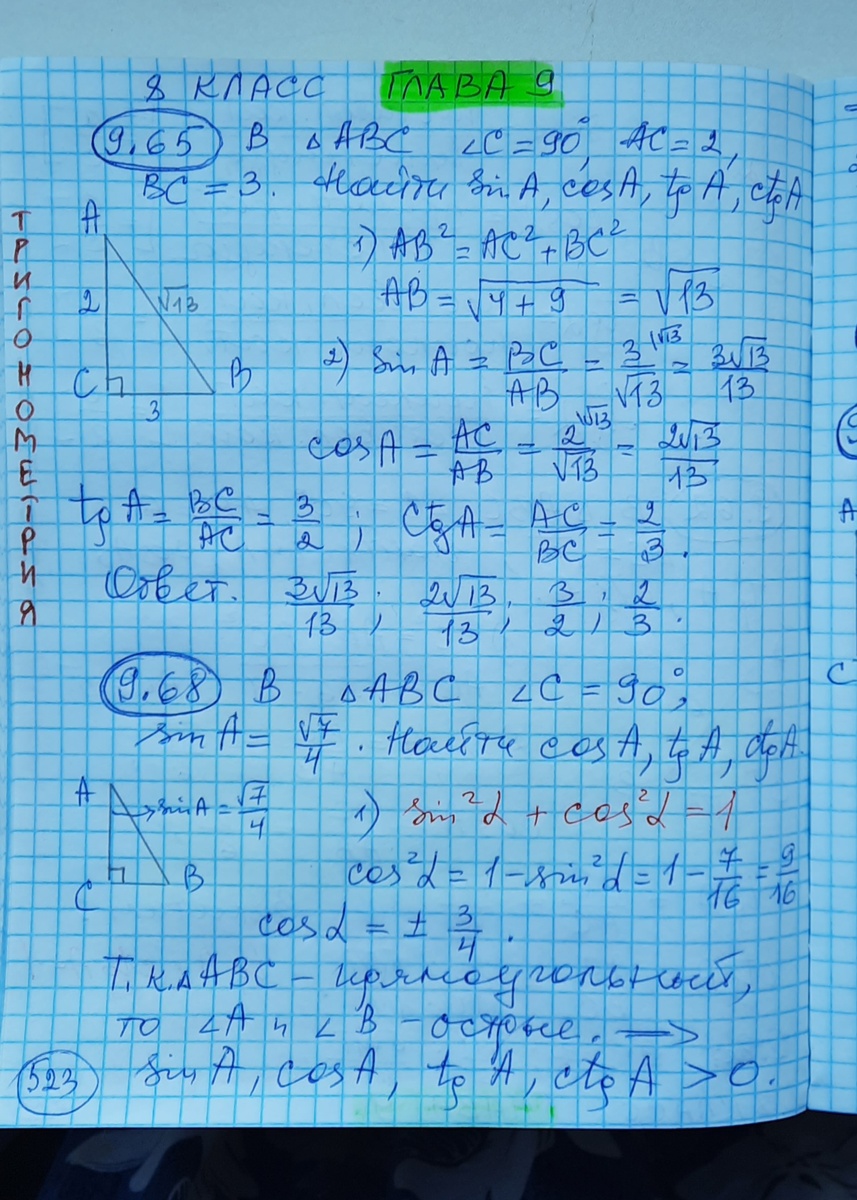 8 КЛАСС ГЛАВА 9
9.65 В △ABC ∠C = 90°, AC = 2,
BC = 3. Найти sin A, cos A, tg A, ctg A
ТРИГОНОМЕТРИЯ
A
2
√13
C
B
3
1) AB² = AC² + BC²
AB = √(4 + 9) = √13
2) sin A = BC/AB = 3/√13 ^(√13) = 3√13/13
cos A = AC/AB = 2/√13 ^(√13) = 2√13/13
tg A = BC/AC = 3/2 ; ctg A = AC/BC = 2/3.
Ответ. 3√13/13; 2√13/13; 3/2; 2/3.
9.68 В △ABC ∠C = 90°;
sin A = √7/4. Найти cos A, tg A, ctg A.
A
sin A = √7/4
C
B
1) sin²α + cos²α = 1
cos²α = 1 - sin²α = 1 - 7/16 = 9/16
cos α = ± 3/4.
Т.к. △ABC – прямоугольный,
то ∠A и ∠B – острые. ⟹
523 sin A, cos A, tg A, ctg A > 0.